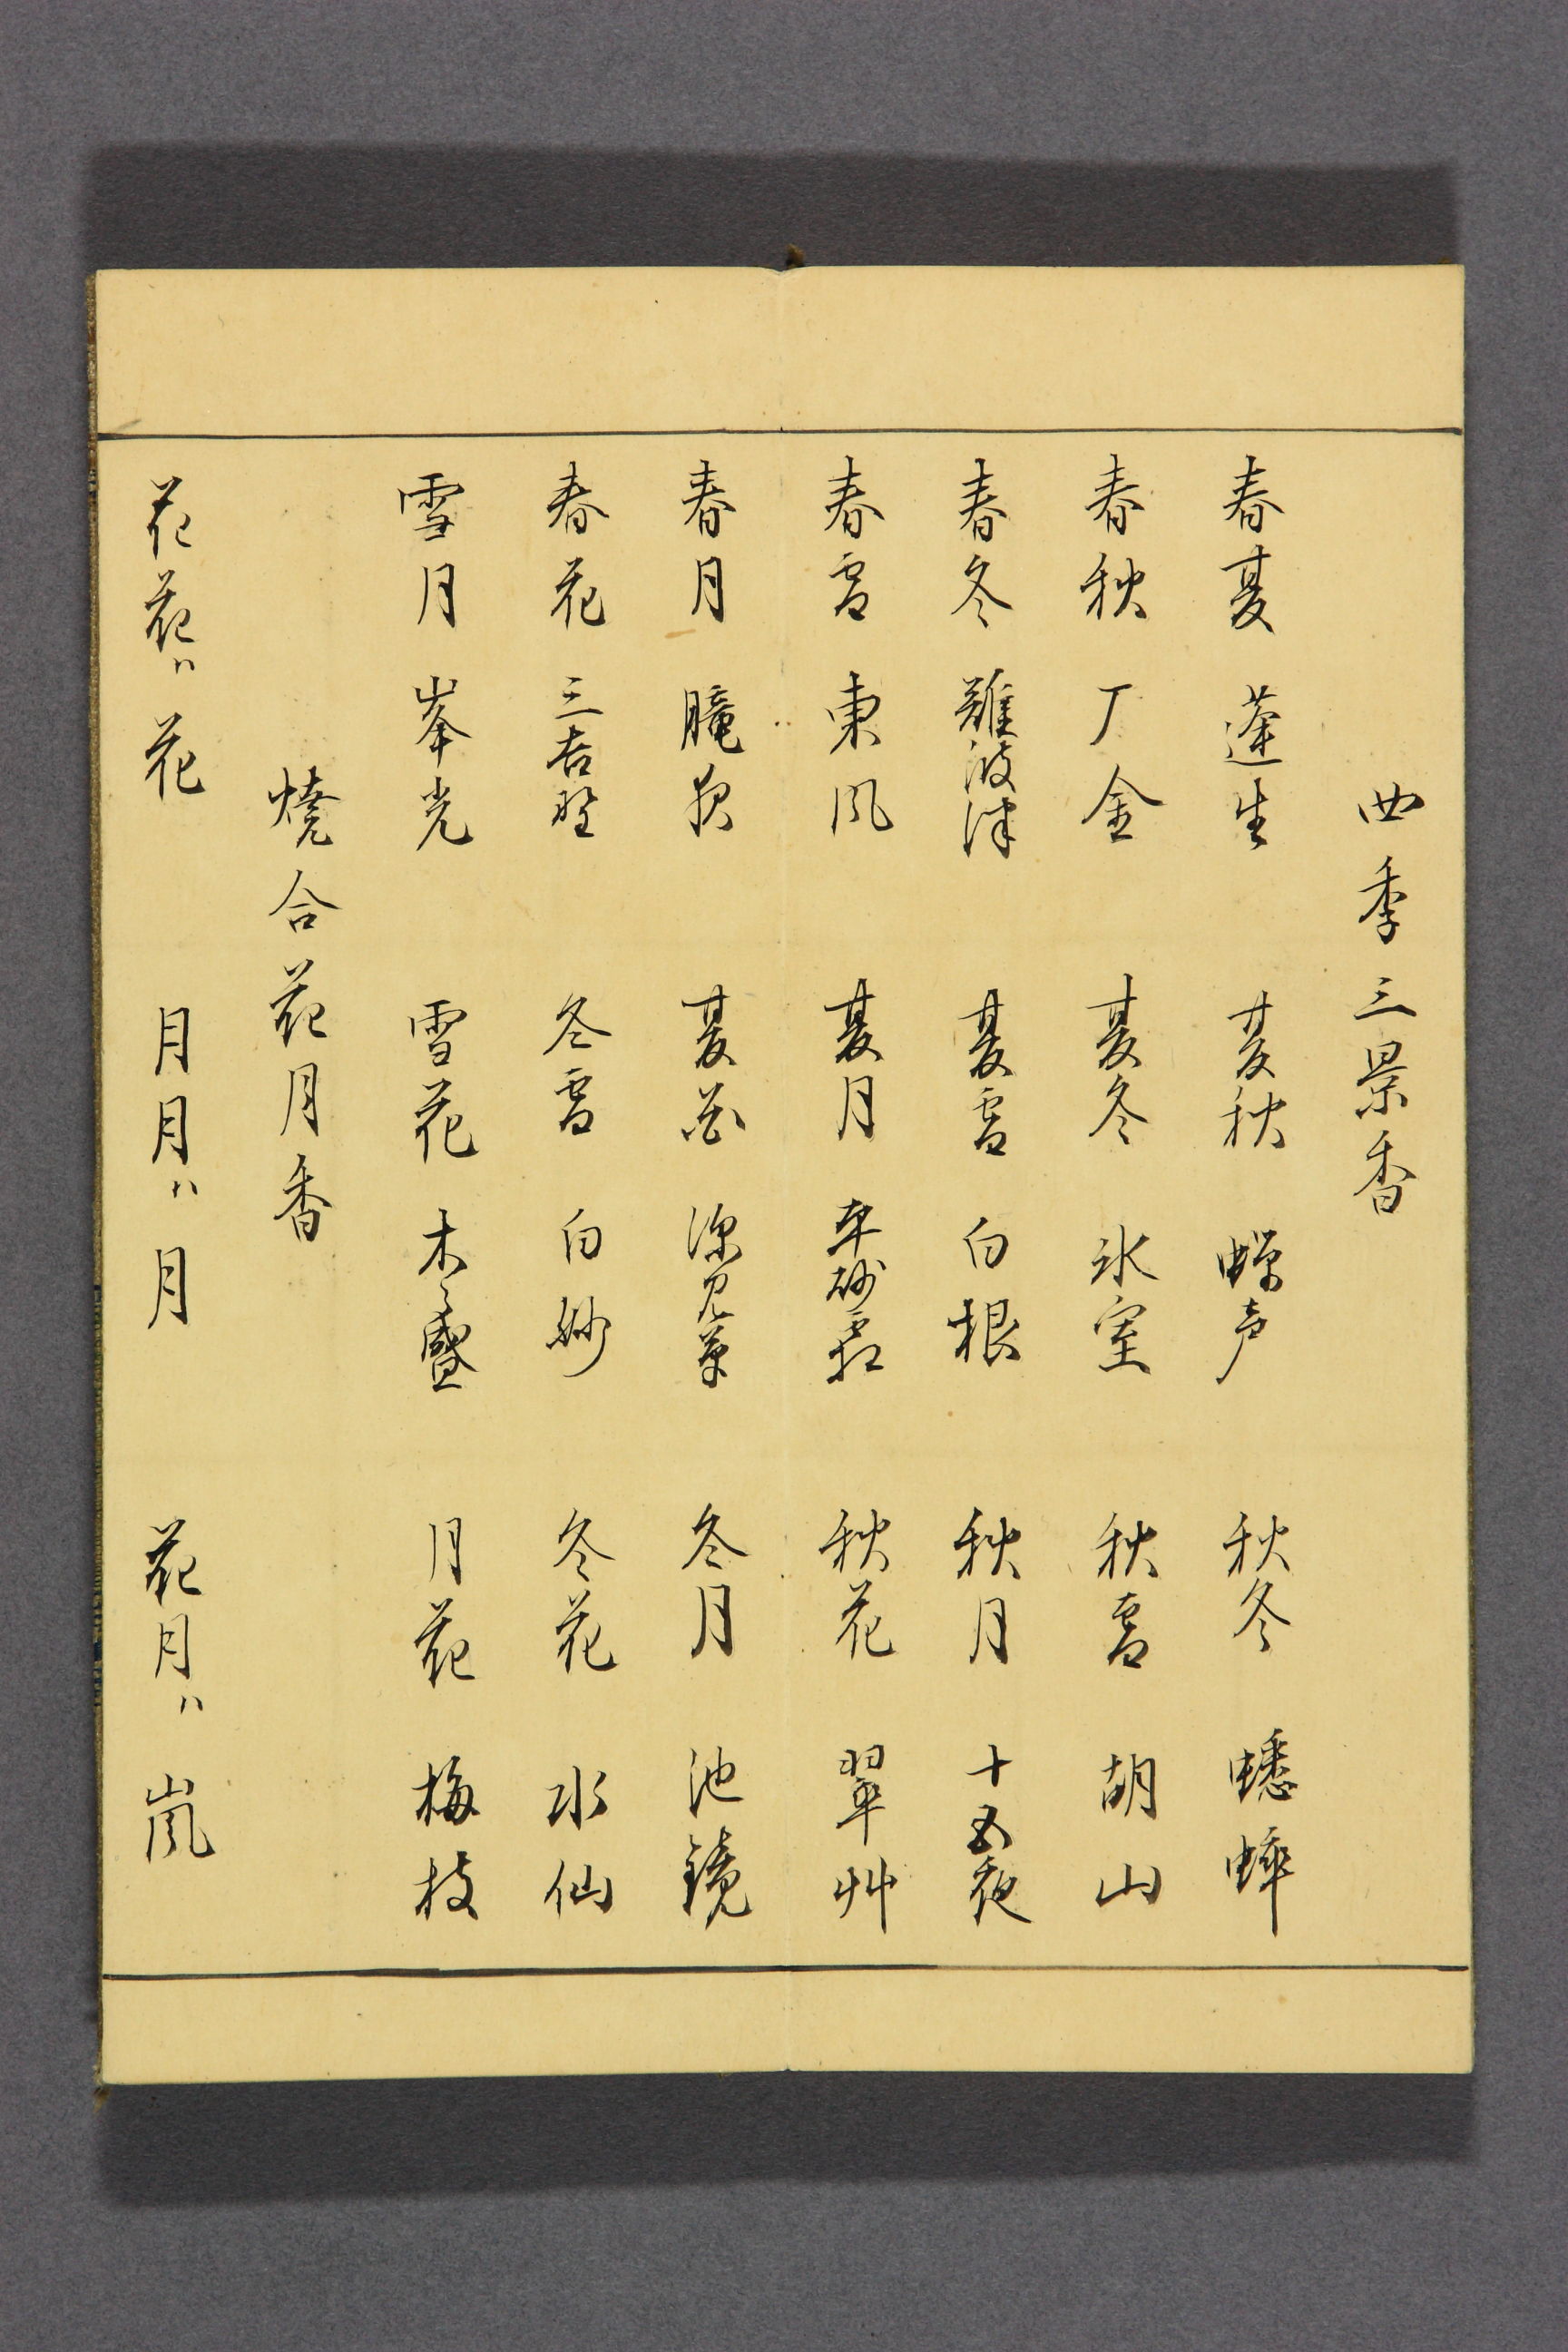 四季三景香
春夏 蓬生 夏秋 蝉声 秋冬 蟋蟀
春秋 厂金 夏冬 氷室 秋雪 胡山
春冬 難波津 夏雪 白根 秋月 十五夜
春雪 東風 夏月 平砂霜 秋花 翠艸
春月 朧夜 夏花 深見草 冬月 池鏡
春花 三吉野 冬雪 白妙 冬花 水仙
雪月 峯光 雪花 木々盛 月花 梅枝
焼合花月香
花花ハ 花 月月ハ 月 花月ハ 嵐